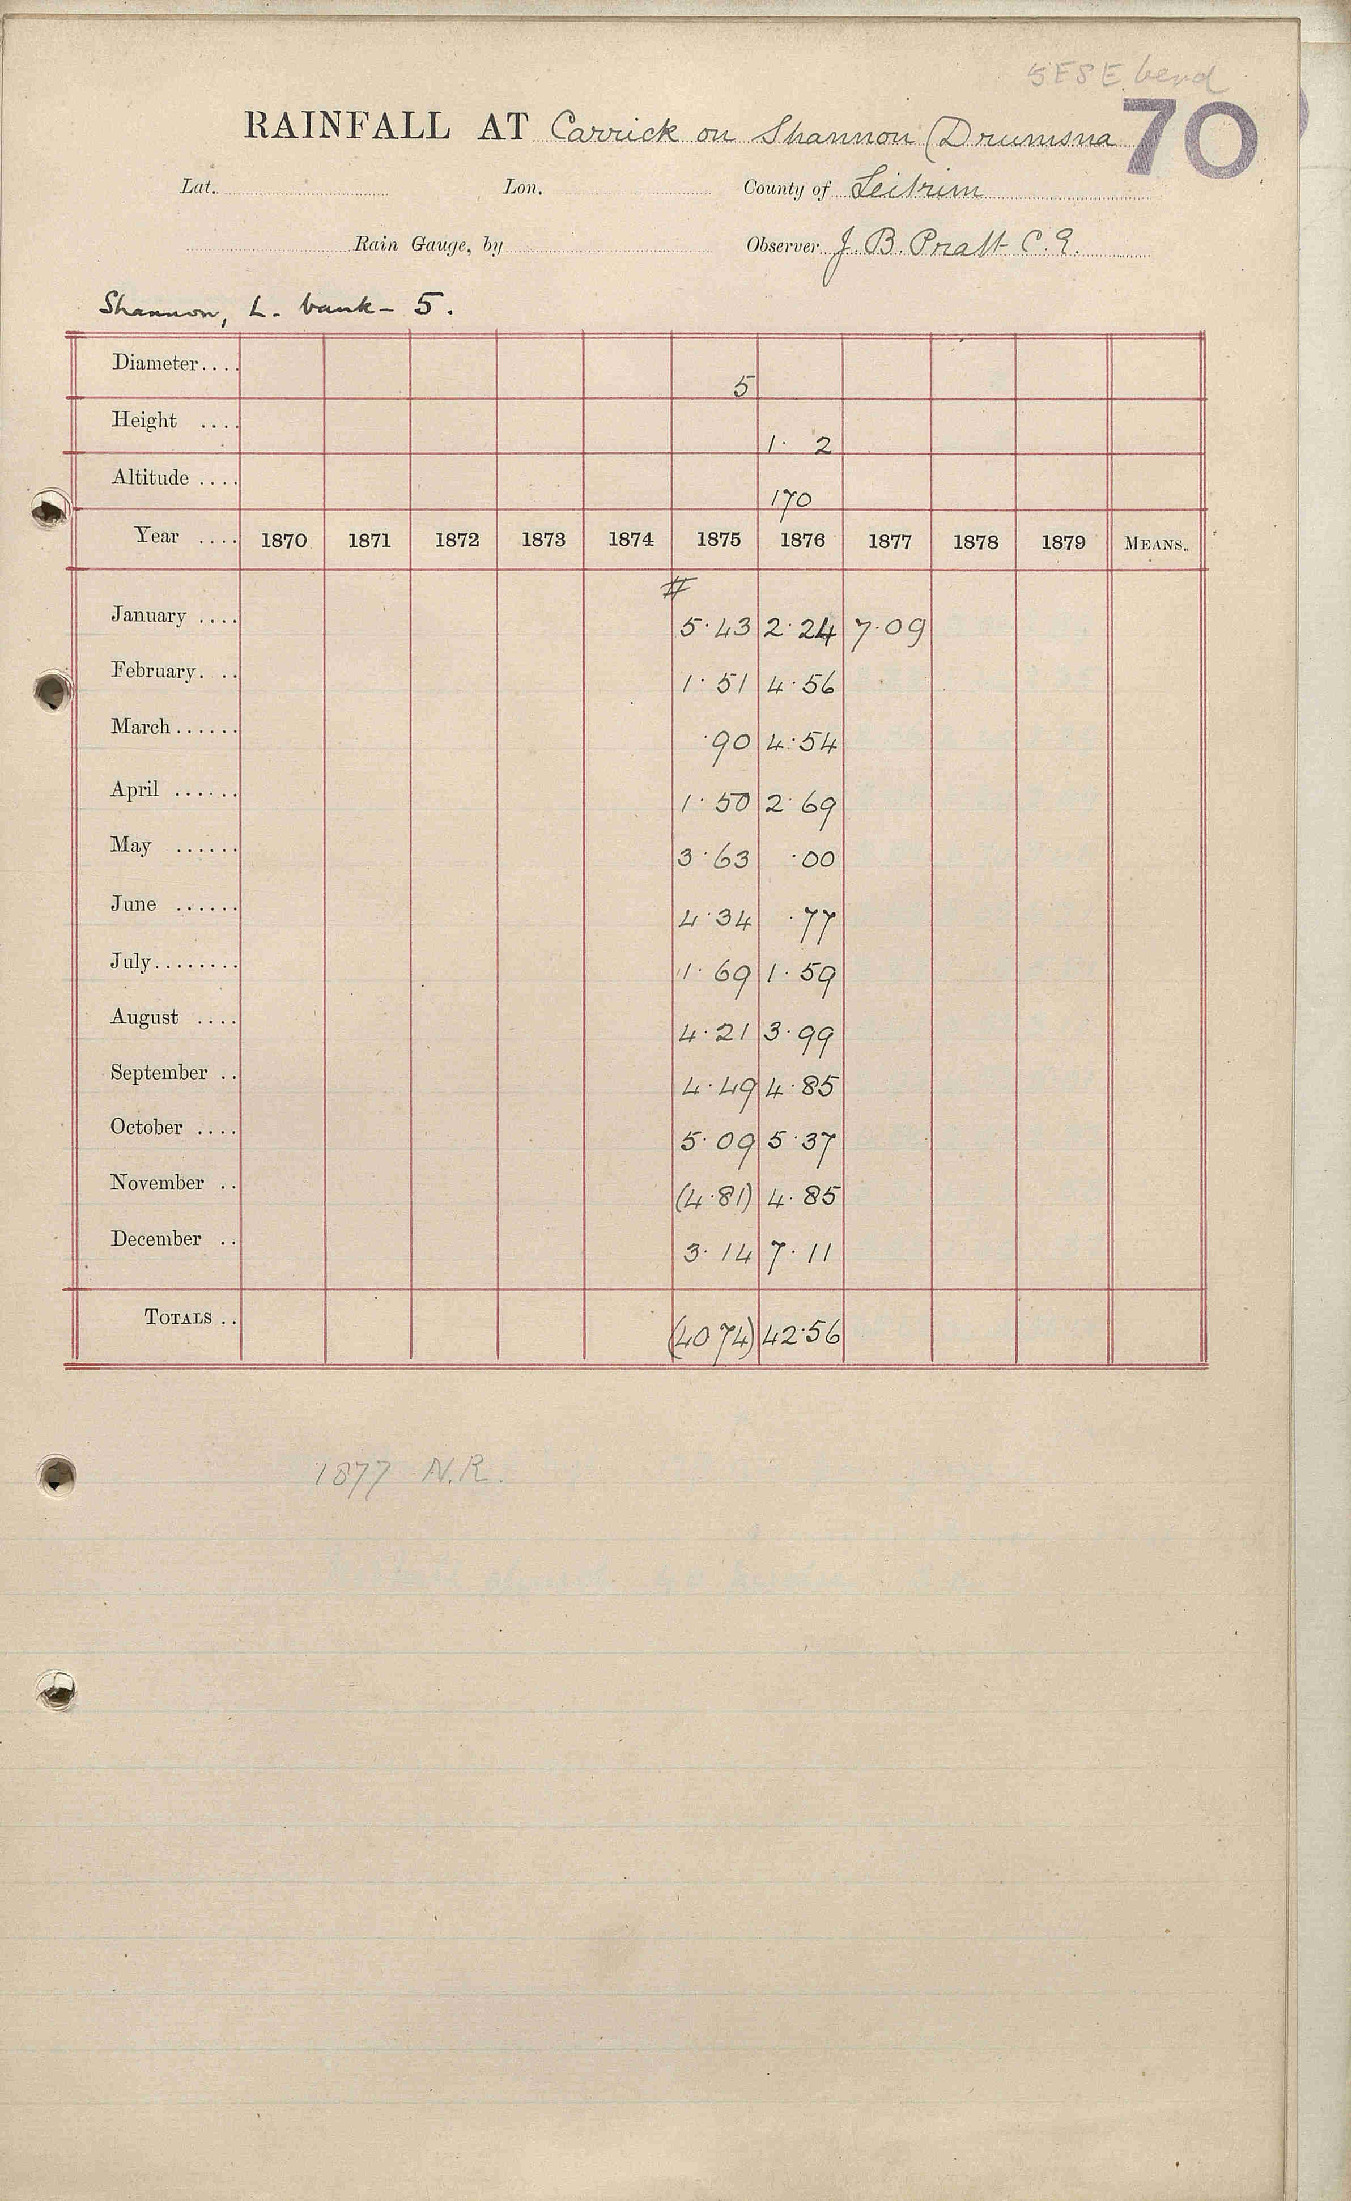 5 ESE bend
70
RAINFALL AT Carrick on Shannon (Drumsna
Lat. Lon. County of Leitrim
Rain Gauge, by Observer J. B. Pratt C.E.
Shannon, L. bank - 5.
Diameter.... 5
Height .... 1. 2
Altitude .... 170
Year .... 1870 1871 1872 1873 1874 1875 1876 1877 1878 1879 MEANS.
#
January .... 5.43 2.24 7.09
February. .. 1.51 4.56
March...... .90 4.54
April ...... 1.50 2.69
May ...... 3.63 .00
June ...... 4.34 .77
July........ 1.69 1.59
August .... 4.21 3.99
September .. 4.49 4.85
October .... 5.09 5.37
November .. (4.81) 4.85
December .. 3.14 7.11
TOTALS .. (40 74) 42.56
1877 N.R.